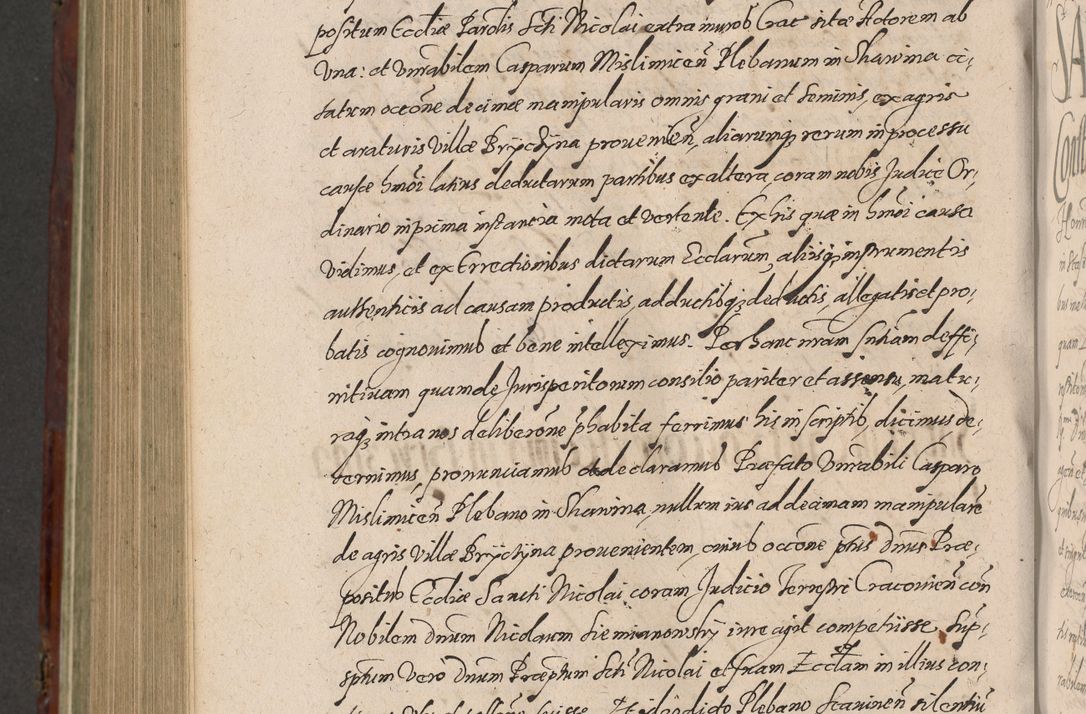 positum Eccliæ Parolis Scti Nicolai extra muros Crac sitæ Actorem ab
Vna: et Vnrabilem Casparum Mislimicen̄ Plebanum in Skawina ci,
tatum occōne decimæ manipularis omnis grani et seminis, ex agris
et araturis Villæ Brÿctÿna prouenien̄, aliarumq; rerum in processu
causæ hmōi latius deductarum partibus ex altera, coram nobis Judice Or,
dinario in prima instantia mota et vertente. Ex his quæ in hmōi causa
vidimus, et ex Errectionibus dictarum Ecclarum, aliisq; instrumentis
authenticis ad causam productis, adductisq; deductis, allegatis et pro,
batis cognouimus et bene intelleximus. Per hanc nram sntiam deffi,
nitiuam quam de Jurisperitorum consilio pariter et assensu, matu,
raq; intra nos deliberōne phabita ferrimus his in scriptis, dicimus, de,
cernimus, pronunciamus et declaramus Præfato Vnrabili Casparo
Mislimicen̄ Plebano in Skawina, nullum ius ad decimam manipularē
de agris Villæ Brÿctÿna prouenientem, cuius occōne pn̄s dnus Præ,
positus Eccliæ Sancti Nicolai coram Judicio Terrestri Cracouien̄ con
Nobilem dnum Nicolaum Siemianowskÿ iure agit competiisse, sup,
sptum vero dnum Præptum Scti Nicolai et suam Ecclam in illius con,
Plebano Scauinen̄ silentiu